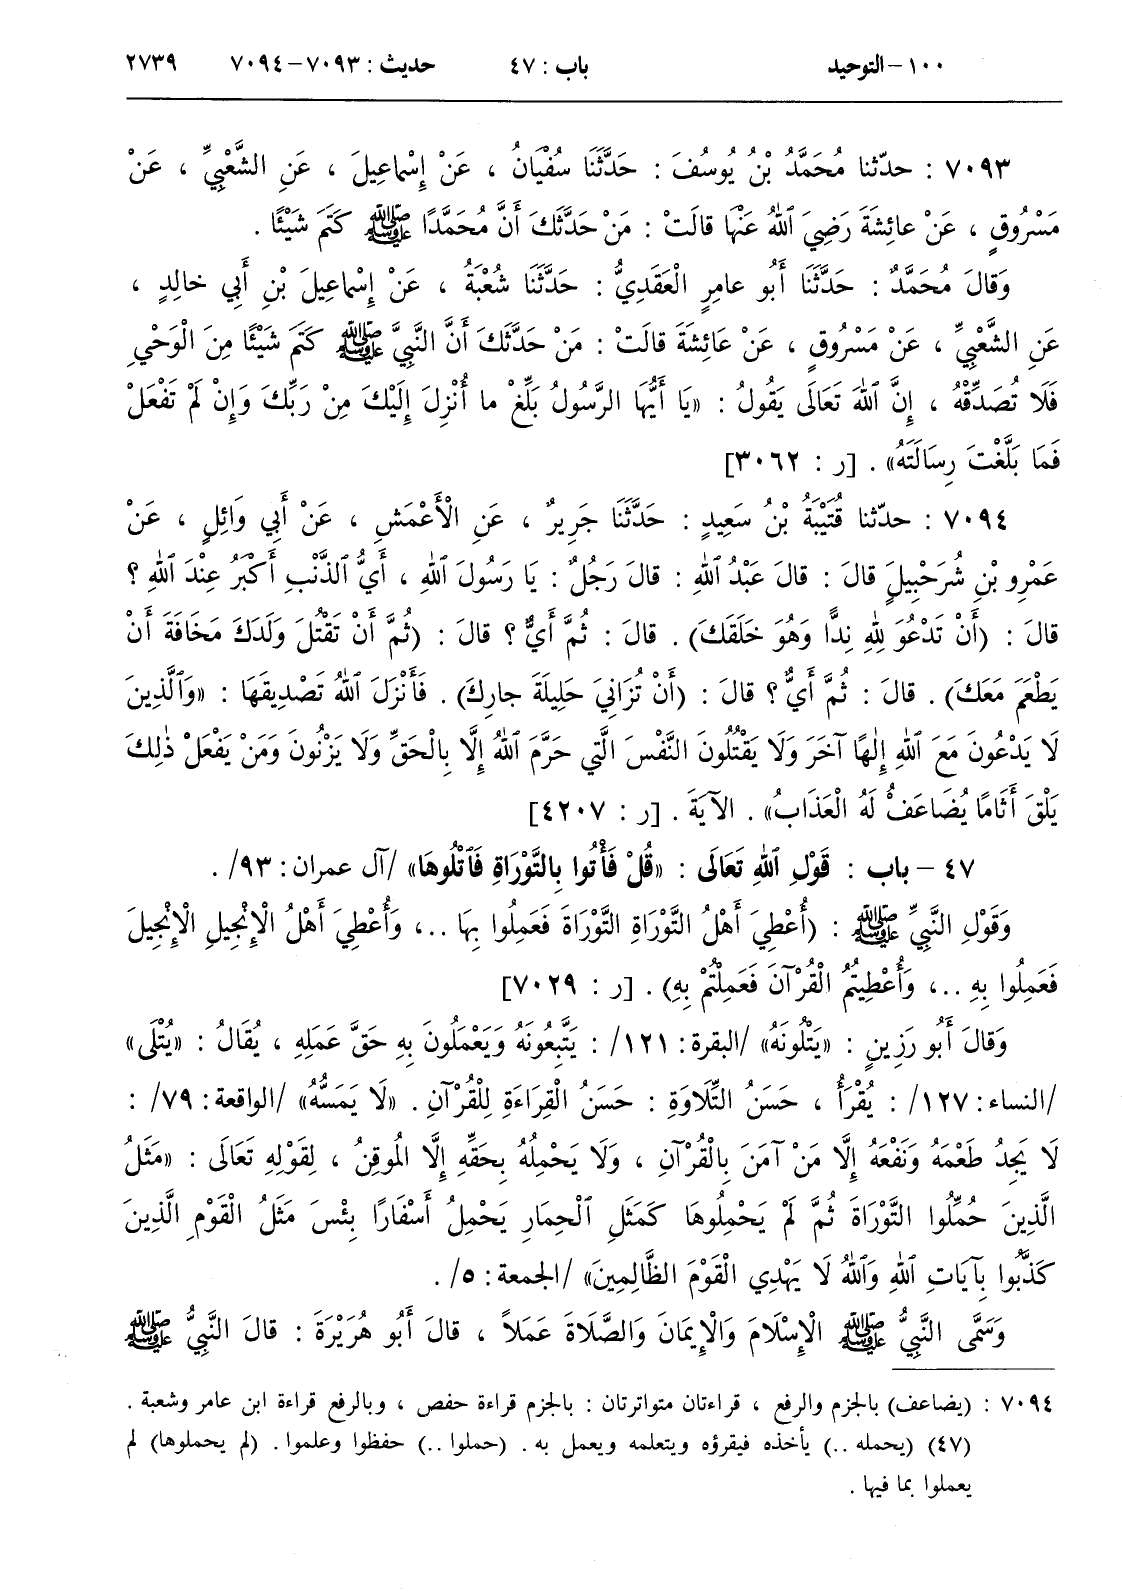 ١٠٠ – التوحيد باب : ٤٧ حديث : ٧٠٩٣ – ٧٠٩٤ ٢٧٣٩
٧٠٩٣ : حدّثنا مُحَمَّدُ بْنُ يُوسُفَ : حَدَّثَنَا سُفْيَانُ ، عَنْ إِسْمَاعِيلَ ، عَنِ الشَّعْبِيِّ ، عَنْ
مَسْرُوقٍ ، عَنْ عائِشَةَ رَضِيَ ٱللهُ عَنْهَا قالَتْ : مَنْ حَدَّثَكَ أَنَّ مُحَمَّدًا ﷺ كَتَمَ شَيْئًا .
وَقالَ مُحَمَّدٌ : حَدَّثَنَا أَبُو عامِرٍ الْعَقَدِيُّ : حَدَّثَنَا شُعْبَةُ ، عَنْ إِسْمَاعِيلَ بْنِ أَبِي خالِدٍ ،
عَنِ الشَّعْبِيِّ ، عَنْ مَسْرُوقٍ ، عَنْ عَائِشَةَ قالَتْ : مَنْ حَدَّثَكَ أَنَّ النَّبِيَّ ﷺ كَتَمَ شَيْئًا مِنَ الْوَحْيِ
فَلَا تُصَدِّقْهُ ، إِنَّ ٱللهَ تَعَالَى يَقُولُ : «يَا أَيُّهَا الرَّسُولُ بَلِّغْ ما أُنْزِلَ إِلَيْكَ مِنْ رَبِّكَ وَإِنْ لَمْ تَفْعَلْ
فَمَا بَلَّغْتَ رِسَالَتَهُ» . [ر : ٣٠٦٢]
٧٠٩٤ : حدّثنا قُتَيْبَةُ بْنُ سَعِيدٍ : حَدَّثَنَا جَرِيرٌ ، عَنِ الْأَعْمَشِ ، عَنْ أَبِي وَائِلٍ ، عَنْ
عَمْرِو بْنِ شُرَحْبِيلَ قالَ : قالَ عَبْدُ ٱللهِ : قالَ رَجُلٌ : يَا رَسُولَ ٱللهِ ، أَيُّ الذَّنْبِ أَكْبَرُ عِنْدَ ٱللهِ ؟
قالَ : (أَنْ تَدْعُوَ لِلهِ نِدًّا وَهُوَ خَلَقَكَ) . قالَ : ثُمَّ أَيٌّ ؟ قالَ : (ثُمَّ أَنْ تَقْتُلَ وَلَدَكَ مَخَافَةَ أَنْ
يَطْعَمَ مَعَكَ) . قالَ : ثُمَّ أَيٌّ ؟ قالَ : (أَنْ تُزَانِيَ حَلِيلَةَ جارِكَ) . فَأَنْزَلَ ٱللهُ تَصْدِيقَهَا : «وَٱلَّذِينَ
لَا يَدْعُونَ مَعَ ٱللهِ إِلٰهًا آخَرَ وَلَا يَقْتُلُونَ النَّفْسَ الَّتِي حَرَّمَ ٱللهُ إِلَّا بِالْحَقِّ وَلَا يَزْنُونَ وَمَنْ يَفْعَلْ ذٰلِكَ
يَلْقَ أَثَامًا يُضَاعَفُ لَهُ الْعَذَابُ» . الآيَةَ . [ر : ٤٢٠٧]
٤٧ – باب : قَوْلِ ٱللهِ تَعَالَى : «قُلْ فَأْتُوا بِالتَّوْرَاةِ فَٱتْلُوهَا» /آل عمران : ٩٣/ .
وَقَوْلِ النَّبِيِّ ﷺ : (أُعْطِيَ أَهْلُ التَّوْرَاةِ التَّوْرَاةَ فَعَمِلُوا بِهَا ..، وَأُعْطِيَ أَهْلُ الْإِنْجِيلِ الْإِنْجِيلَ
فَعَمِلُوا بِهِ ..، وَأُعْطِيتُمُ الْقُرْآنَ فَعَمِلْتُمْ بِهِ) . [ر : ٧٠٢٩]
وَقالَ أَبُو رَزِينٍ : «يَتْلُونَهُ» /البقرة : ١٢١/ : يَتَّبِعُونَهُ وَيَعْمَلُونَ بِهِ حَقَّ عَمَلِهِ ، يُقَالُ : «يُتْلَى»
/النساء : ١٢٧/ : يُقْرَأُ ، حَسَنُ التِّلَاوَةِ : حَسَنُ الْقِرَاءَةِ لِلْقُرْآنِ . «لَا يَمَسُّهُ» /الواقعة : ٧٩/ :
لَا يَجِدُ طَعْمَهُ وَنَفْعَهُ إِلَّا مَنْ آمَنَ بِالْقُرْآنِ ، وَلَا يَحْمِلُهُ بِحَقِّهِ إِلَّا الْمُوقِنُ ، لِقَوْلِهِ تَعَالَى : «مَثَلُ
الَّذِينَ حُمِّلُوا التَّوْرَاةَ ثُمَّ لَمْ يَحْمِلُوهَا كَمَثَلِ ٱلْحِمَارِ يَحْمِلُ أَسْفَارًا بِئْسَ مَثَلُ الْقَوْمِ الَّذِينَ
كَذَّبُوا بِآيَاتِ ٱللهِ وَٱللهُ لَا يَهْدِي الْقَوْمَ الظَّالِمِينَ» /الجمعة : ٥/ .
وَسَمَّى النَّبِيُّ ﷺ الْإِسْلَامَ وَالْإِيمَانَ وَالصَّلَاةَ عَمَلاً ، قالَ أَبُو هُرَيْرَةَ : قالَ النَّبِيُّ ﷺ
٧٠٩٤ : (يضاعف) بالجزم والرفع ، قراءتان متواترتان : بالجزم قراءة حفص ، وبالرفع قراءة ابن عامر وشعبة .
(٤٧) (يحمله ..) يأخذه فيقرؤه ويتعلمه ويعمل به . (حملوا ..) حفظوا وعلموا . (لم يحملوها) لم
يعملوا بما فيها .